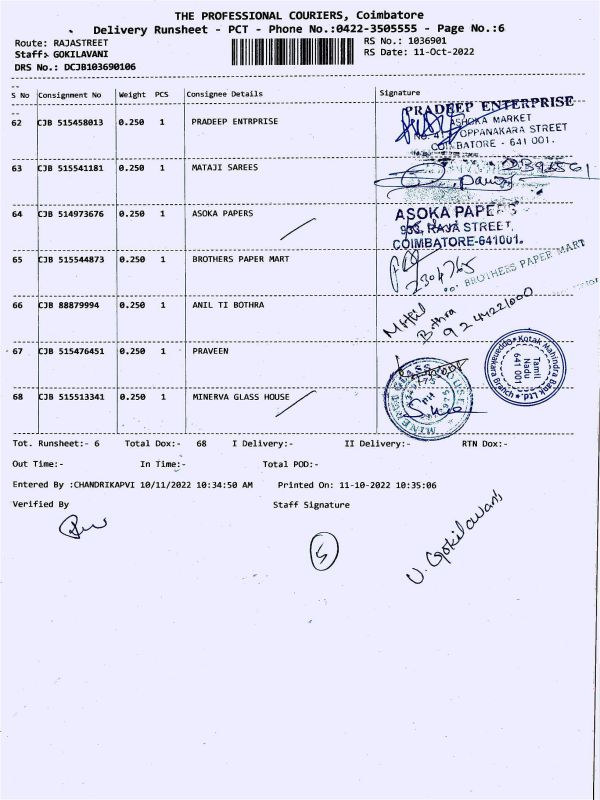 THE PROFESSIONAL COURIERS, Coimbatore
Delivery Runsheet - PCT - Phone No.:0422-3505555 - Page No.:6
Route: RAJASTREET
RS No.: 1036901
Staff: GOKILAVANI
RS Date: 11-Oct-2022
DRS No.: DCJB103690106
S No Consignment No Weight PCS Consignee Details Signature
62 CJB 515458013 0.250 1 PRADEEP ENTRPRISE
PRADEEP ENTERPRISE
ASHOKA MARKET
OPPANAKARA STREET
COIMBATORE - 641 001.
63 CJB 515541181 0.250 1 MATAJI SAREES
64 CJB 514973676 0.250 1 ASOKA PAPERS
ASOKA PAPERS
953, RAJA STREET,
COIMBATORE-641001.
65 CJB 515544873 0.250 1 BROTHERS PAPER MART
2304765
BROTHERS PAPER MART
66 CJB 88879994 0.250 1 ANIL TI BOTHRA
Bothra
67 CJB 515476451 0.250 1 PRAVEEN
Kotak Mahindra Bank Ltd.
Oppanakkara Branch
Tamil
Nadu
641 001
68 CJB 515513341 0.250 1 MINERVA GLASS HOUSE
MINERVA GLASS HOUSE
Tot. Runsheet:- 6 Total Dox:- 68 I Delivery:- II Delivery:- RTN Dox:-
Out Time:- In Time:- Total POD:-
Entered By :CHANDRIKAPVI 10/11/2022 10:34:50 AM Printed On: 11-10-2022 10:35:06
Verified By Staff Signature
5
V. Gokilavani